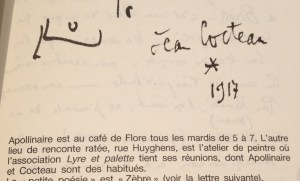 Jean Cocteau
*
1917
Apollinaire est au café de Flore tous les mardis de 5 à 7. L'autre
lieu de renconte ratée, rue Huyghens, est l'atelier de peintre où
l'association Lyre et palette tient ses réunions, dont Apollinaire
et Cocteau sont des habitués.
La « petite poésie » est « Zèbre » (voir la lettre suivante).